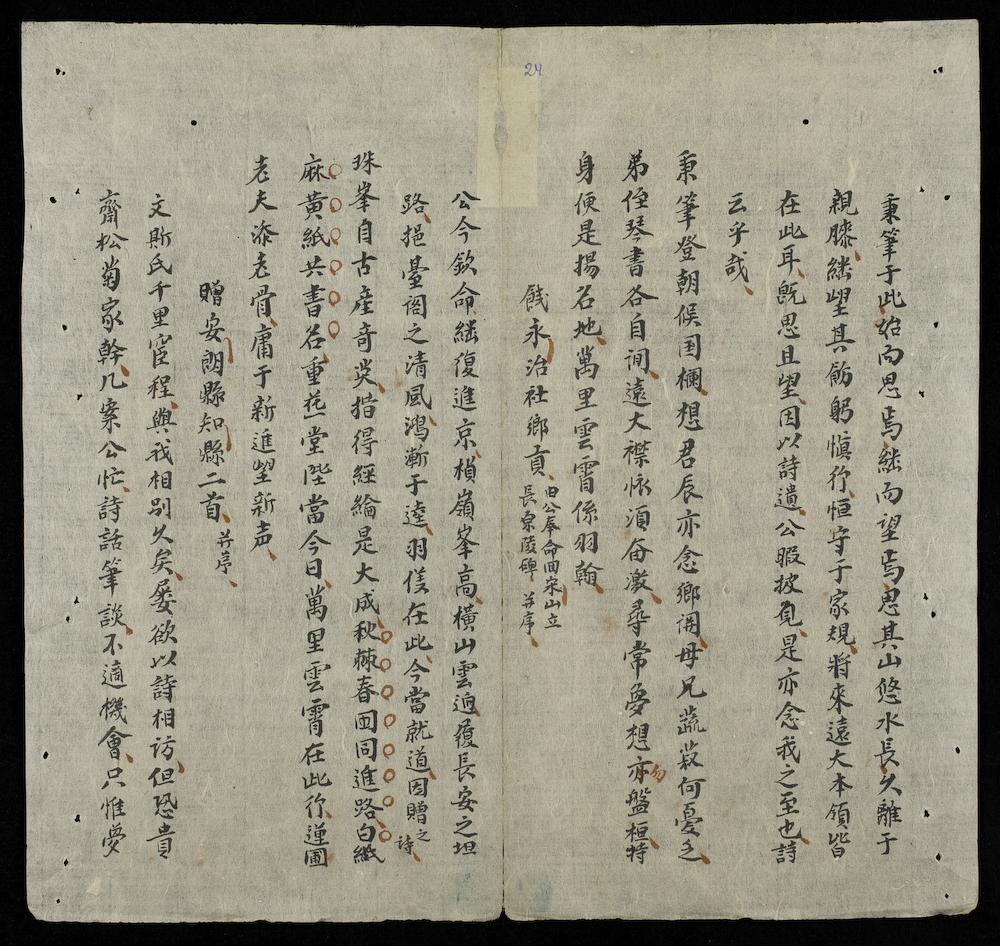 24
秉筆于此始而思焉繼而望焉思其山悠水長久離于
親膝繼望其飭躬慎行恒守于家規將來遠大本領皆
在此耳既思且望因以詩遺公暇披覓是亦念我之至也詩
云乎哉
秉筆登朝候国欄想君辰亦念鄉関母兄蔬菽何憂乏
弟侄琴書各自閒遠大襟怀須每激尋常夢想亦勿盤桓特
身便是揚名地萬里雲霄係羽翰
餞永治社鄉貢
旧公奉命回宋山立
長原陵碑并序
公今欽命繼復進京楨嶺峯高橫山雲逈履長安之坦
路挹臺阁之清風鴻漸于逵羽儀在此今當就道因贈之
詩
珠峯自古産奇英措得經綸是大成秋棘春囬同進路白紙
麻黄紙共書名重花一堂陛當今日萬里雲霄在此行運圖
老夫添老骨庸于新進望新声
贈安朗縣知縣二首并序
文斯氏千里宦程與我相别久矣屡欲以詩相访但恐貴
齋松菊家幹几案公忙詩話筆談不適機會只惟夢